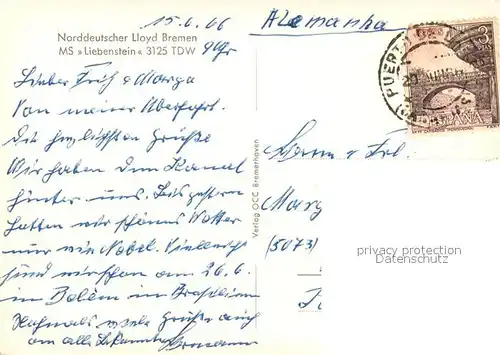 15.6.66
Alemanha
Norddeutscher Lloyd Bremen
MS »Liebenstein« 3125 TDW
9 Uhr
Lieber Fritz & Marga
Von meiner Überfahrt
die herzlichsten Grüße
Wir haben den Kanal
hinter uns. Bis gestern
hatten wir schönes Wetter
nur ein Nebel. Vielleicht
sind wir schon am 26.6.
in Belém in Brasilien
Nochmals viele Grüße auch
an alle Bekannten Hermann
Verlag OCC Bremerhaven
PUERTO
3
PTAS
ESPAÑA
Herrn u. Frl.
Marg
(5073)
privacy protection
Datenschutz